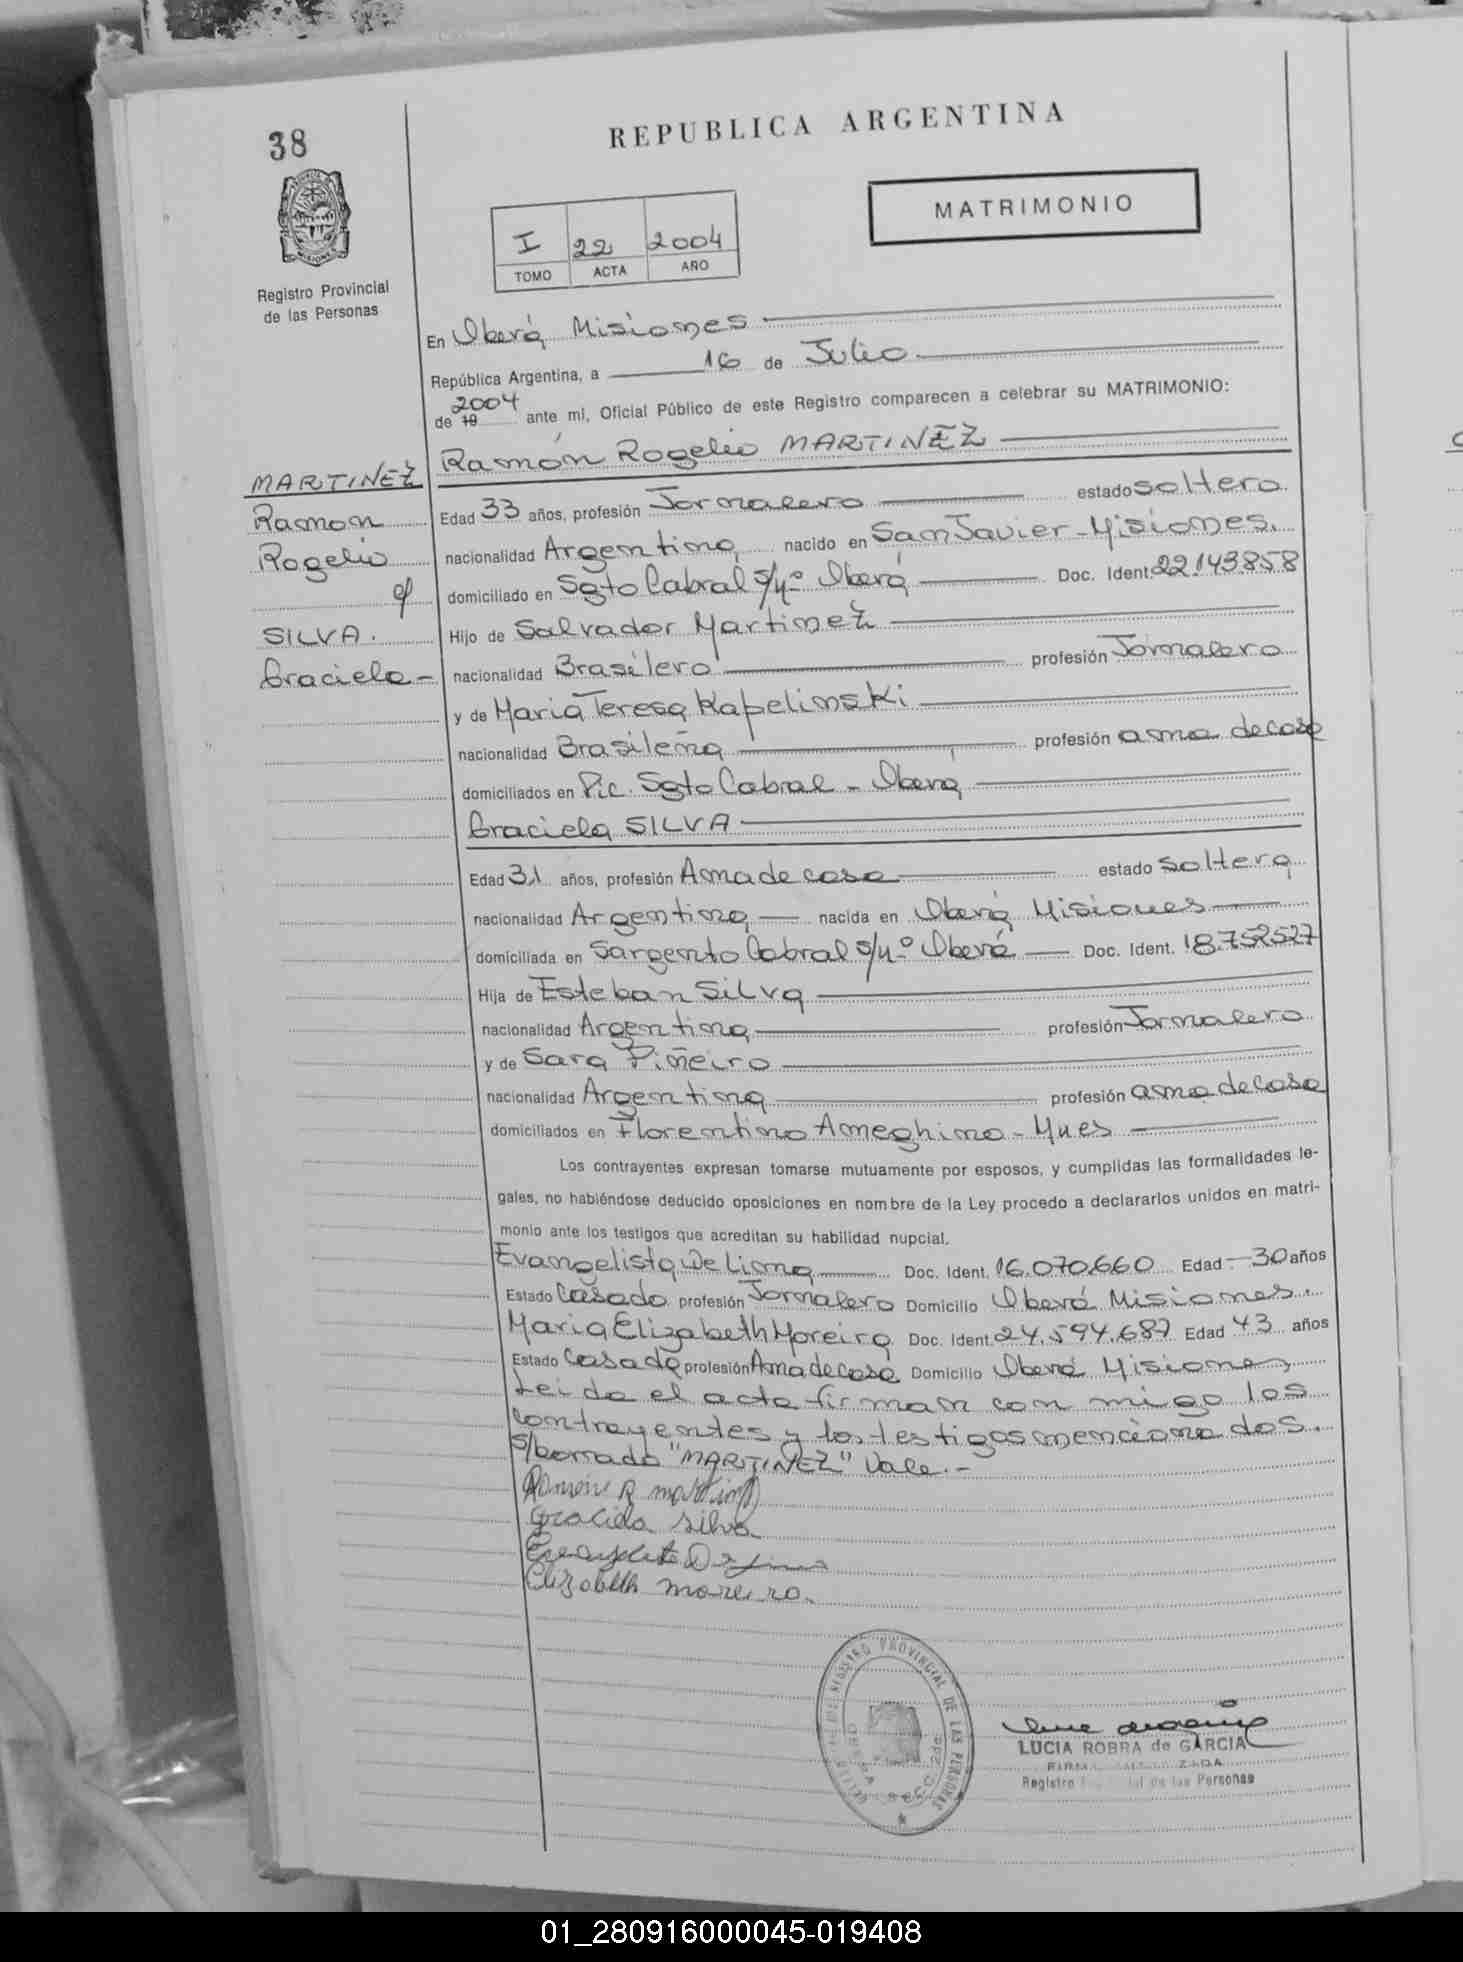 38
REPUBLICA ARGENTINA
MATRIMONIO
I 22 2004
TOMO ACTA AÑO
Registro Provincial
de las Personas
En Oberá Misiones
República Argentina, a 16 de Julio
de 19 2004 ante mí, Oficial Público de este Registro comparecen a celebrar su MATRIMONIO:
Ramón Rogelio MARTINEZ
MARTINEZ
Ramon
Rogelio
c/
SILVA.
Graciela -
Edad 33 años, profesión Jornalero estado soltero
nacionalidad Argentina nacido en San Javier - Misiones.
domiciliado en Sgto Cabral s/nº Oberá Doc. Ident. 22.143.858
Hijo de Salvador Martinez
nacionalidad Brasilero profesión Jornalero
y de Maria Teresa Kapelinski
nacionalidad Brasileña profesión ama de casa
domiciliados en Pic. Sgto Cabral - Oberá
Graciela SILVA
Edad 31 años, profesión Ama de casa estado soltera
nacionalidad Argentina nacida en Oberá Misiones
domiciliada en Sargento Cabral s/nº Oberá Doc. Ident. 18.752.527
Hija de Esteban Silva
nacionalidad Argentina profesión Jornalero
y de Sara Piñeiro
nacionalidad Argentina profesión ama de casa
domiciliados en Florentino Ameghino - Mnes
Los contrayentes expresan tomarse mutuamente por esposos, y cumplidas las formalidades le-
gales, no habiéndose deducido oposiciones en nombre de la Ley procedo a declararlos unidos en matri-
monio ante los testigos que acreditan su habilidad nupcial.
Evangelista De Lima Doc. Ident. 16.070.660 Edad 30 años
Estado Casado profesión Jornalero Domicilio Oberá Misiones.
Maria Elizabeth Moreira Doc. Ident. 24.594.687 Edad 43 años
Estado Casada profesión Ama de casa Domicilio Oberá Misiones
Leida el acta firman con migo los
contrayentes y los testigos mencionados.
S/borrado "MARTINEZ" Vale.-
Ramón R martinez
Graciela silva
Elizabeth moreira.
REGISTRO PROVINCIAL DE LAS PERSONAS
OBERA
LUCIA ROBRA de GARCIA
Registro de las Personas
01_280916000045-019408